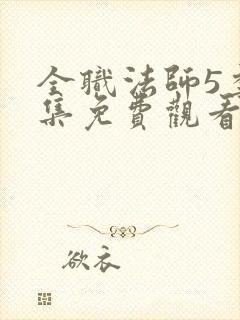 全職法師5
集免費觀看
欲衣